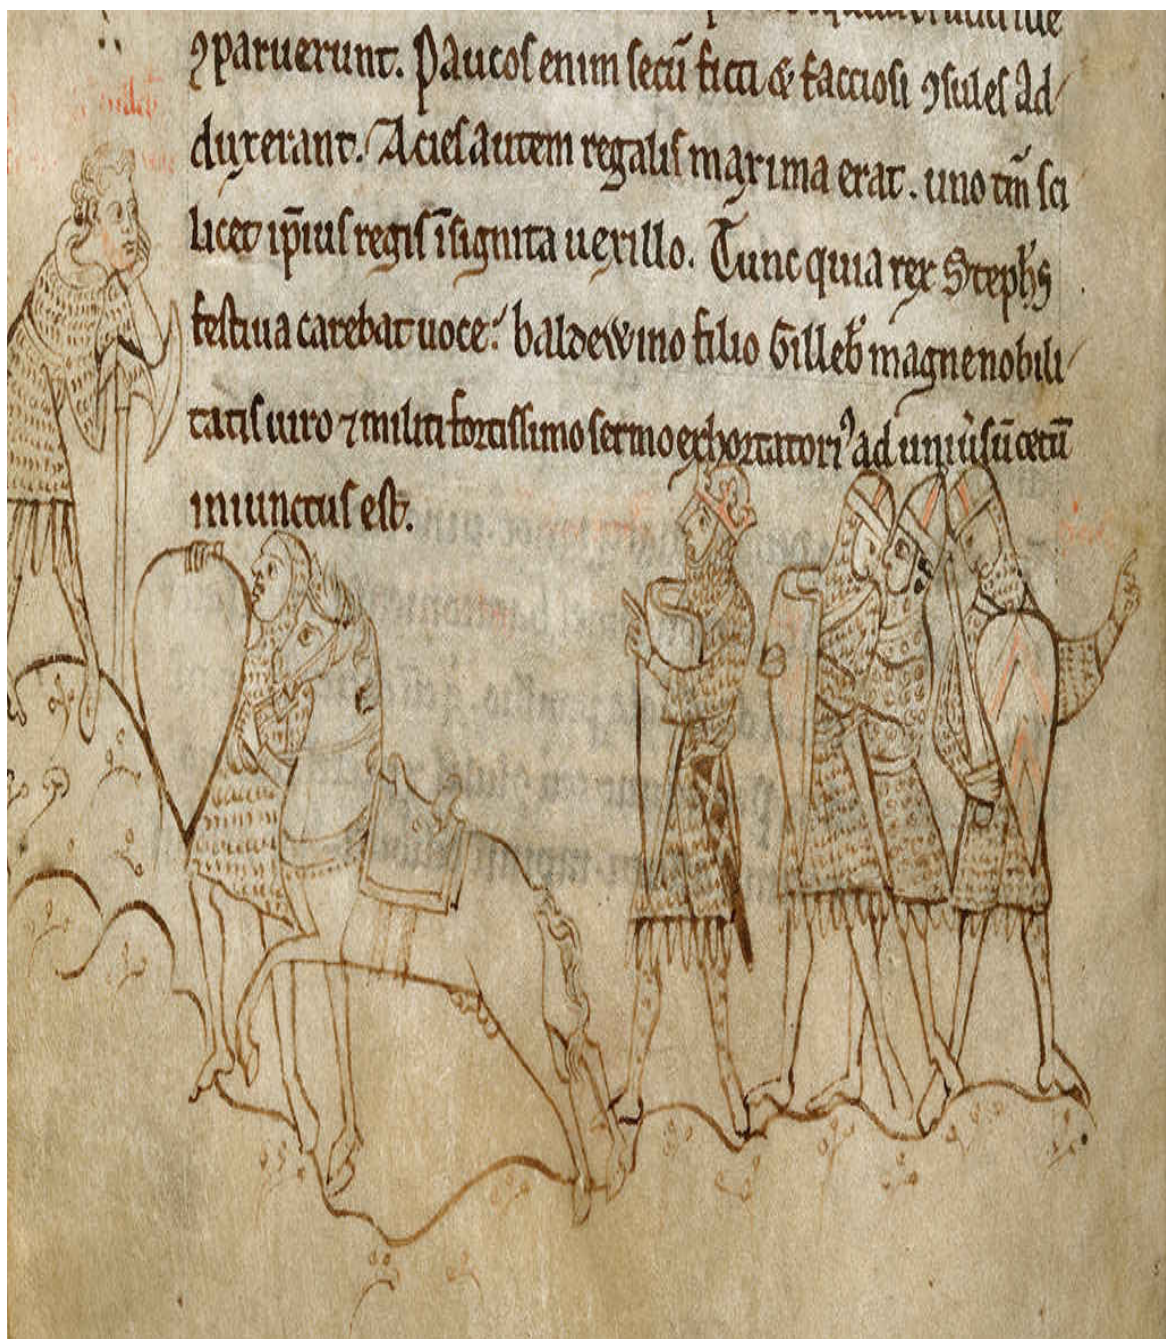 ꝯparuerunt. Paucos enim secū ficti & facciosi ꝯsules ad
duxerant. Acies autem regalis maxima erat. uno tm̄ sci
licet ip̄ius regis īsignita uexillo. Tunc quia rex Steph̄s
festiua carebat uoce: baldewino filio Gilleb̄ magne nobili
tatis uiro ⁊ militi fortissimo sermo exhortatoriꝰ ad uniuūsū cetū
iniunctus est.